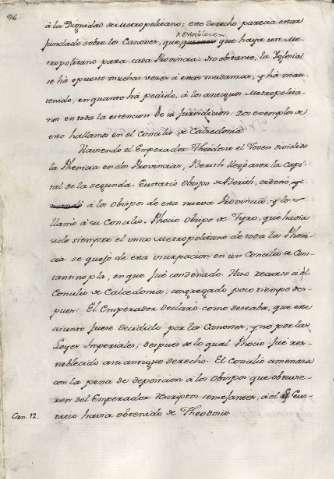 96
à la Dignidad de Metropolitano; este derecho parecia estar
fundado sobre los Canones, que establecen
que haya un Me-
tropolitano para cada Provincia. No obstante, la Iglesia
se há opuesto muchas veces à estas mudanzas, y há man-
tenido, en quanto há podido, à los antiguos Metropolita-
nos en toda la extencion de su jurisdiccion. Dos exemplos de
esto hallamos en el Concilio de Calcedonia.
Haviendo el Emperador Theodosio el Joven dividido
la Phenicia en dos Provincias, Beryth llegó à ser la Capi-
tal de la segunda. Eustacio Obispo de Beryth, ordenó
à los Obispos de esta nueva Provincia, y los
llamó à su Concilio. Phocio Obispo de Tyro, que havia
sido siempre el unico Metropolitano de toda la Pheni-
cia se quejó de esta usurpacion en un Concilio de Cons-
tantinopla, en que fué condenado. Hizo recurso al
Concilio de Calcedonia, congregado poco tiempo des-
pues. El Emperador declaró como deseaba, que este
asunto fuese decidido por los Canones, y no por las
Leyes Imperiales, despues de lo qual Phocio fué res-
tablecido en su antiguo derecho. El Concilio amenaza
con la pena de deposicion à los Obispos que obtuvie-
ren del Emperador Rescriptos semejantes, à el q.e Eus-
Can. 12. tacio havia obtenido de Theodosio